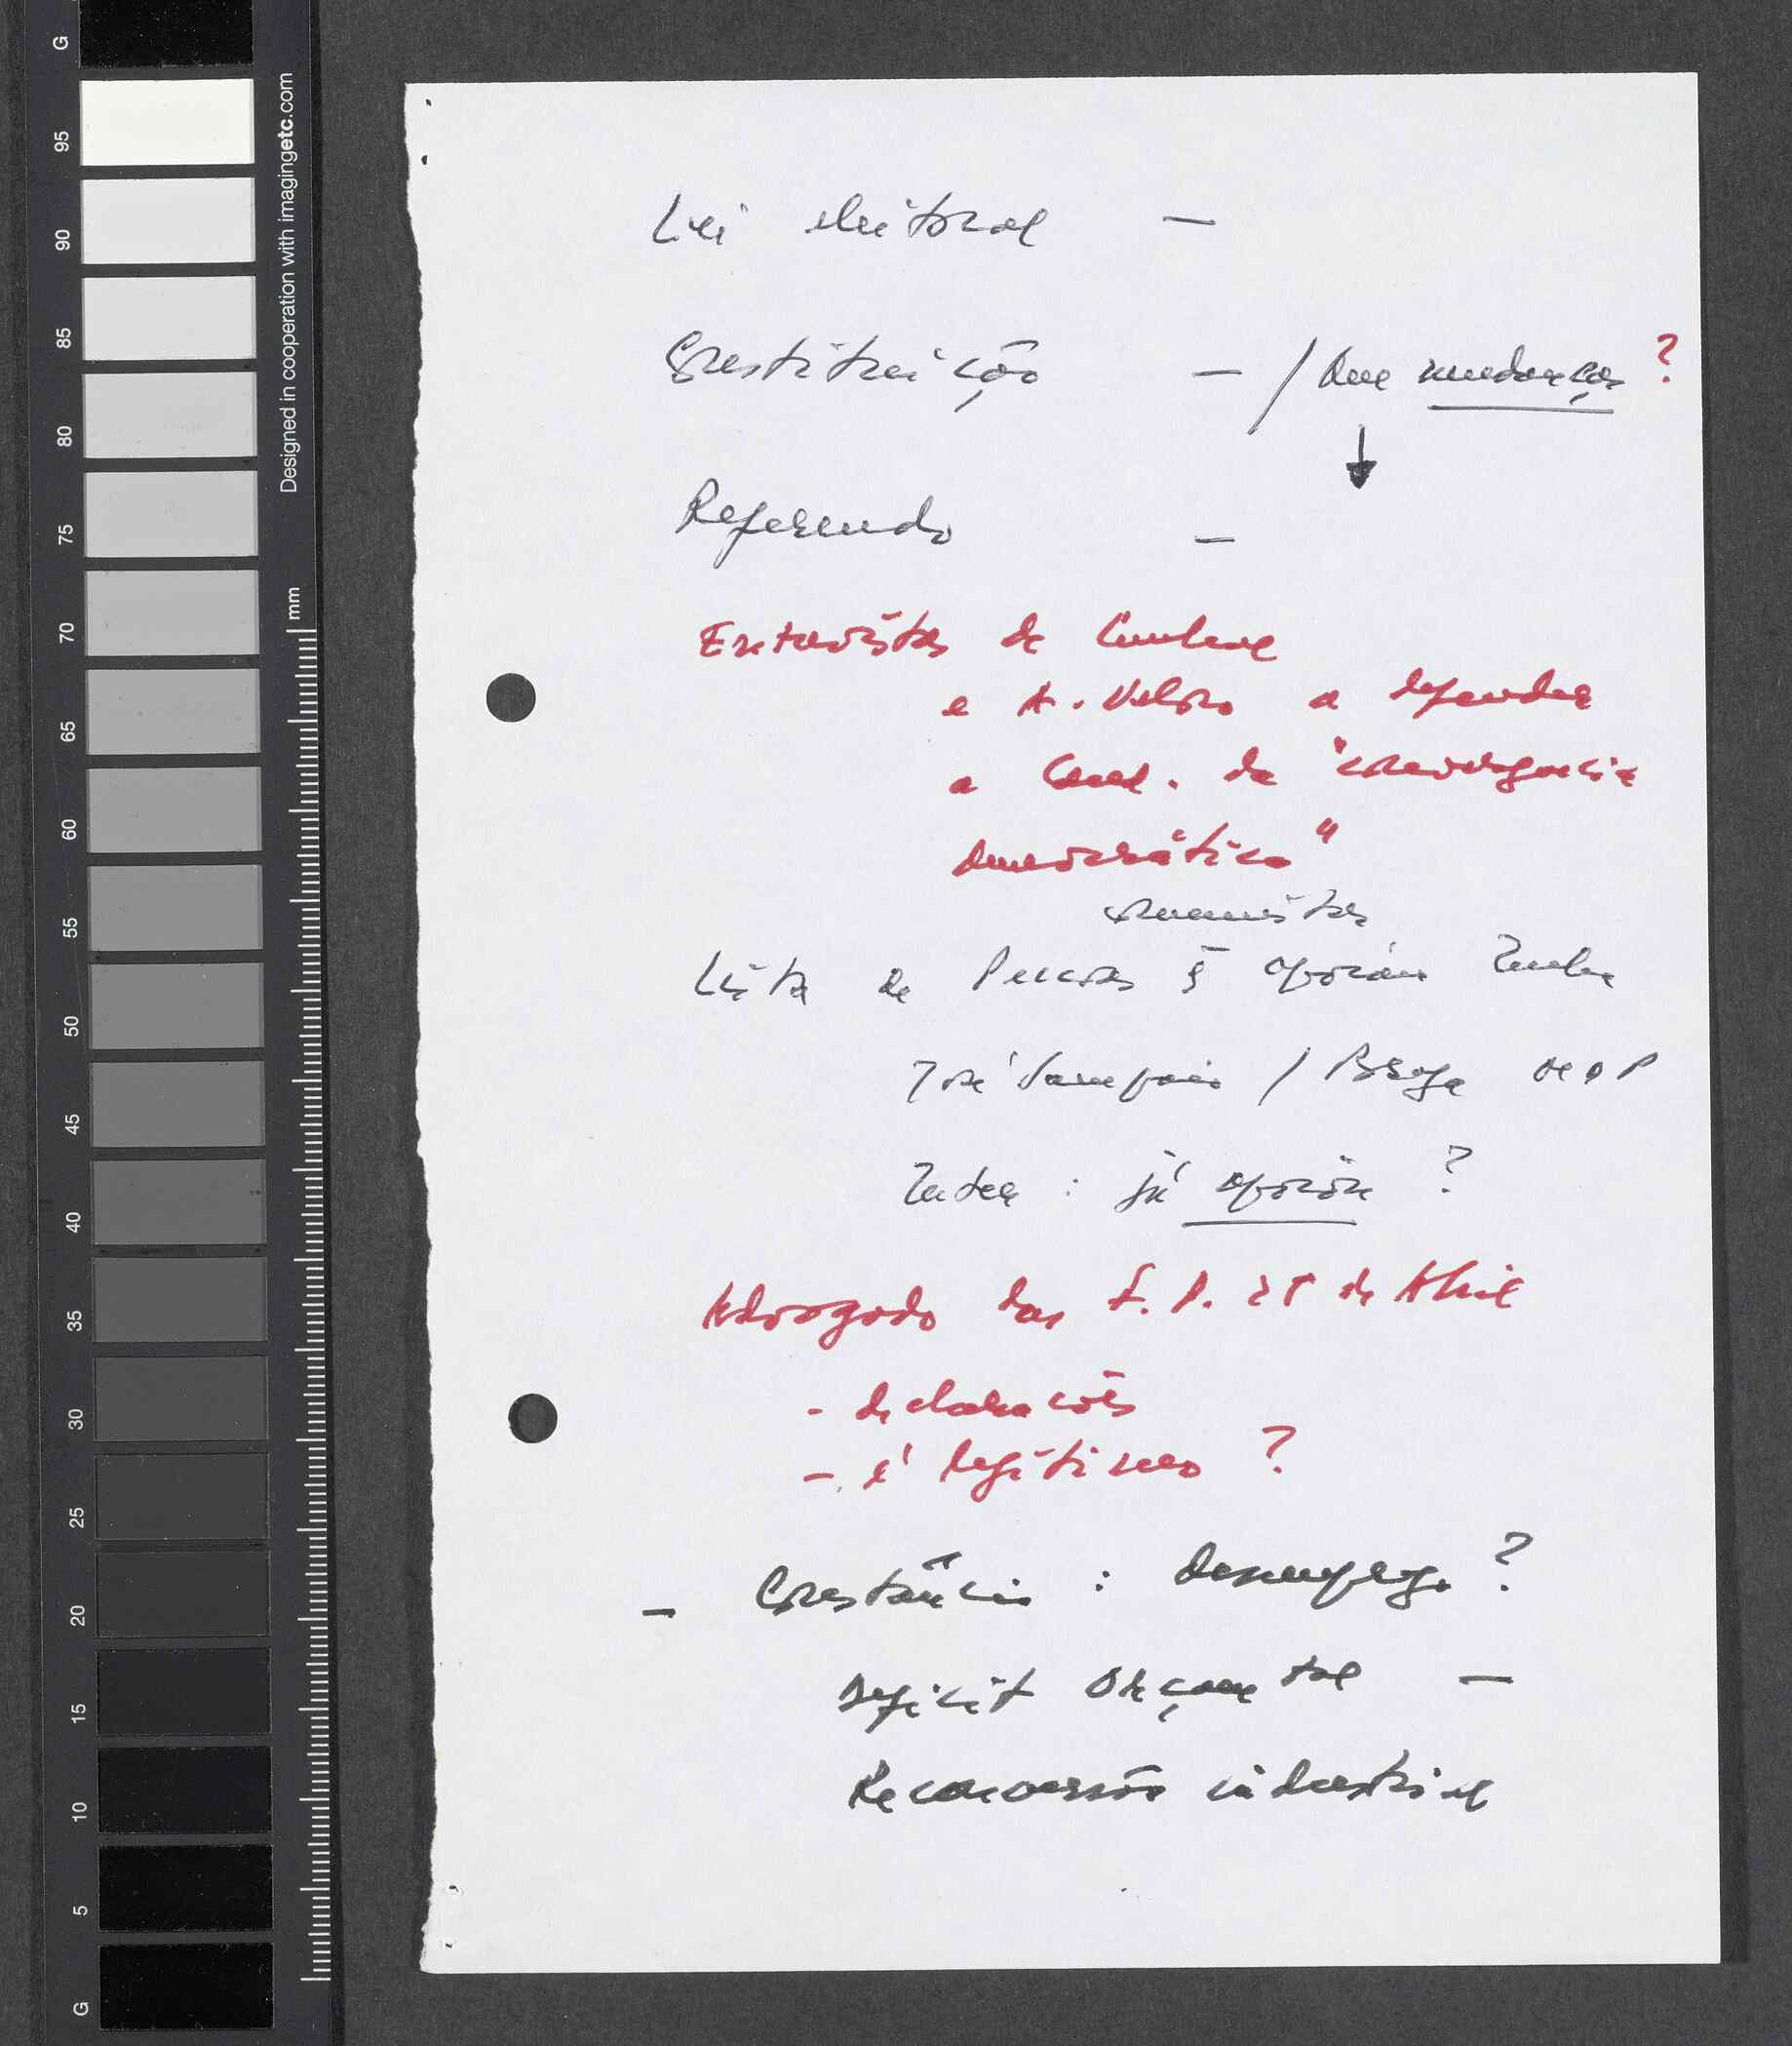 G
95
90
85
80
75
70
65
60
55
50
45
40
35
30
25
20
15
10
5
G
Designed in cooperation with imagingetc.com
mm
Lei eleitoral —
Constituição — / Que mudanças ?
Referendo —
Entrevistas de Cunhal
e A. Veloso a defender
a Cand. da "convergência
democrática"
comunistas
Lista de Pessoas q apoiam
José Sampaio / Braga
: já apoiou ?
Advogado das F.P. 25 de Abril
- declarações
- é legítimo ?
— Constâncio : desemprego ?
Deficit Orçamental —
Reconversão industrial